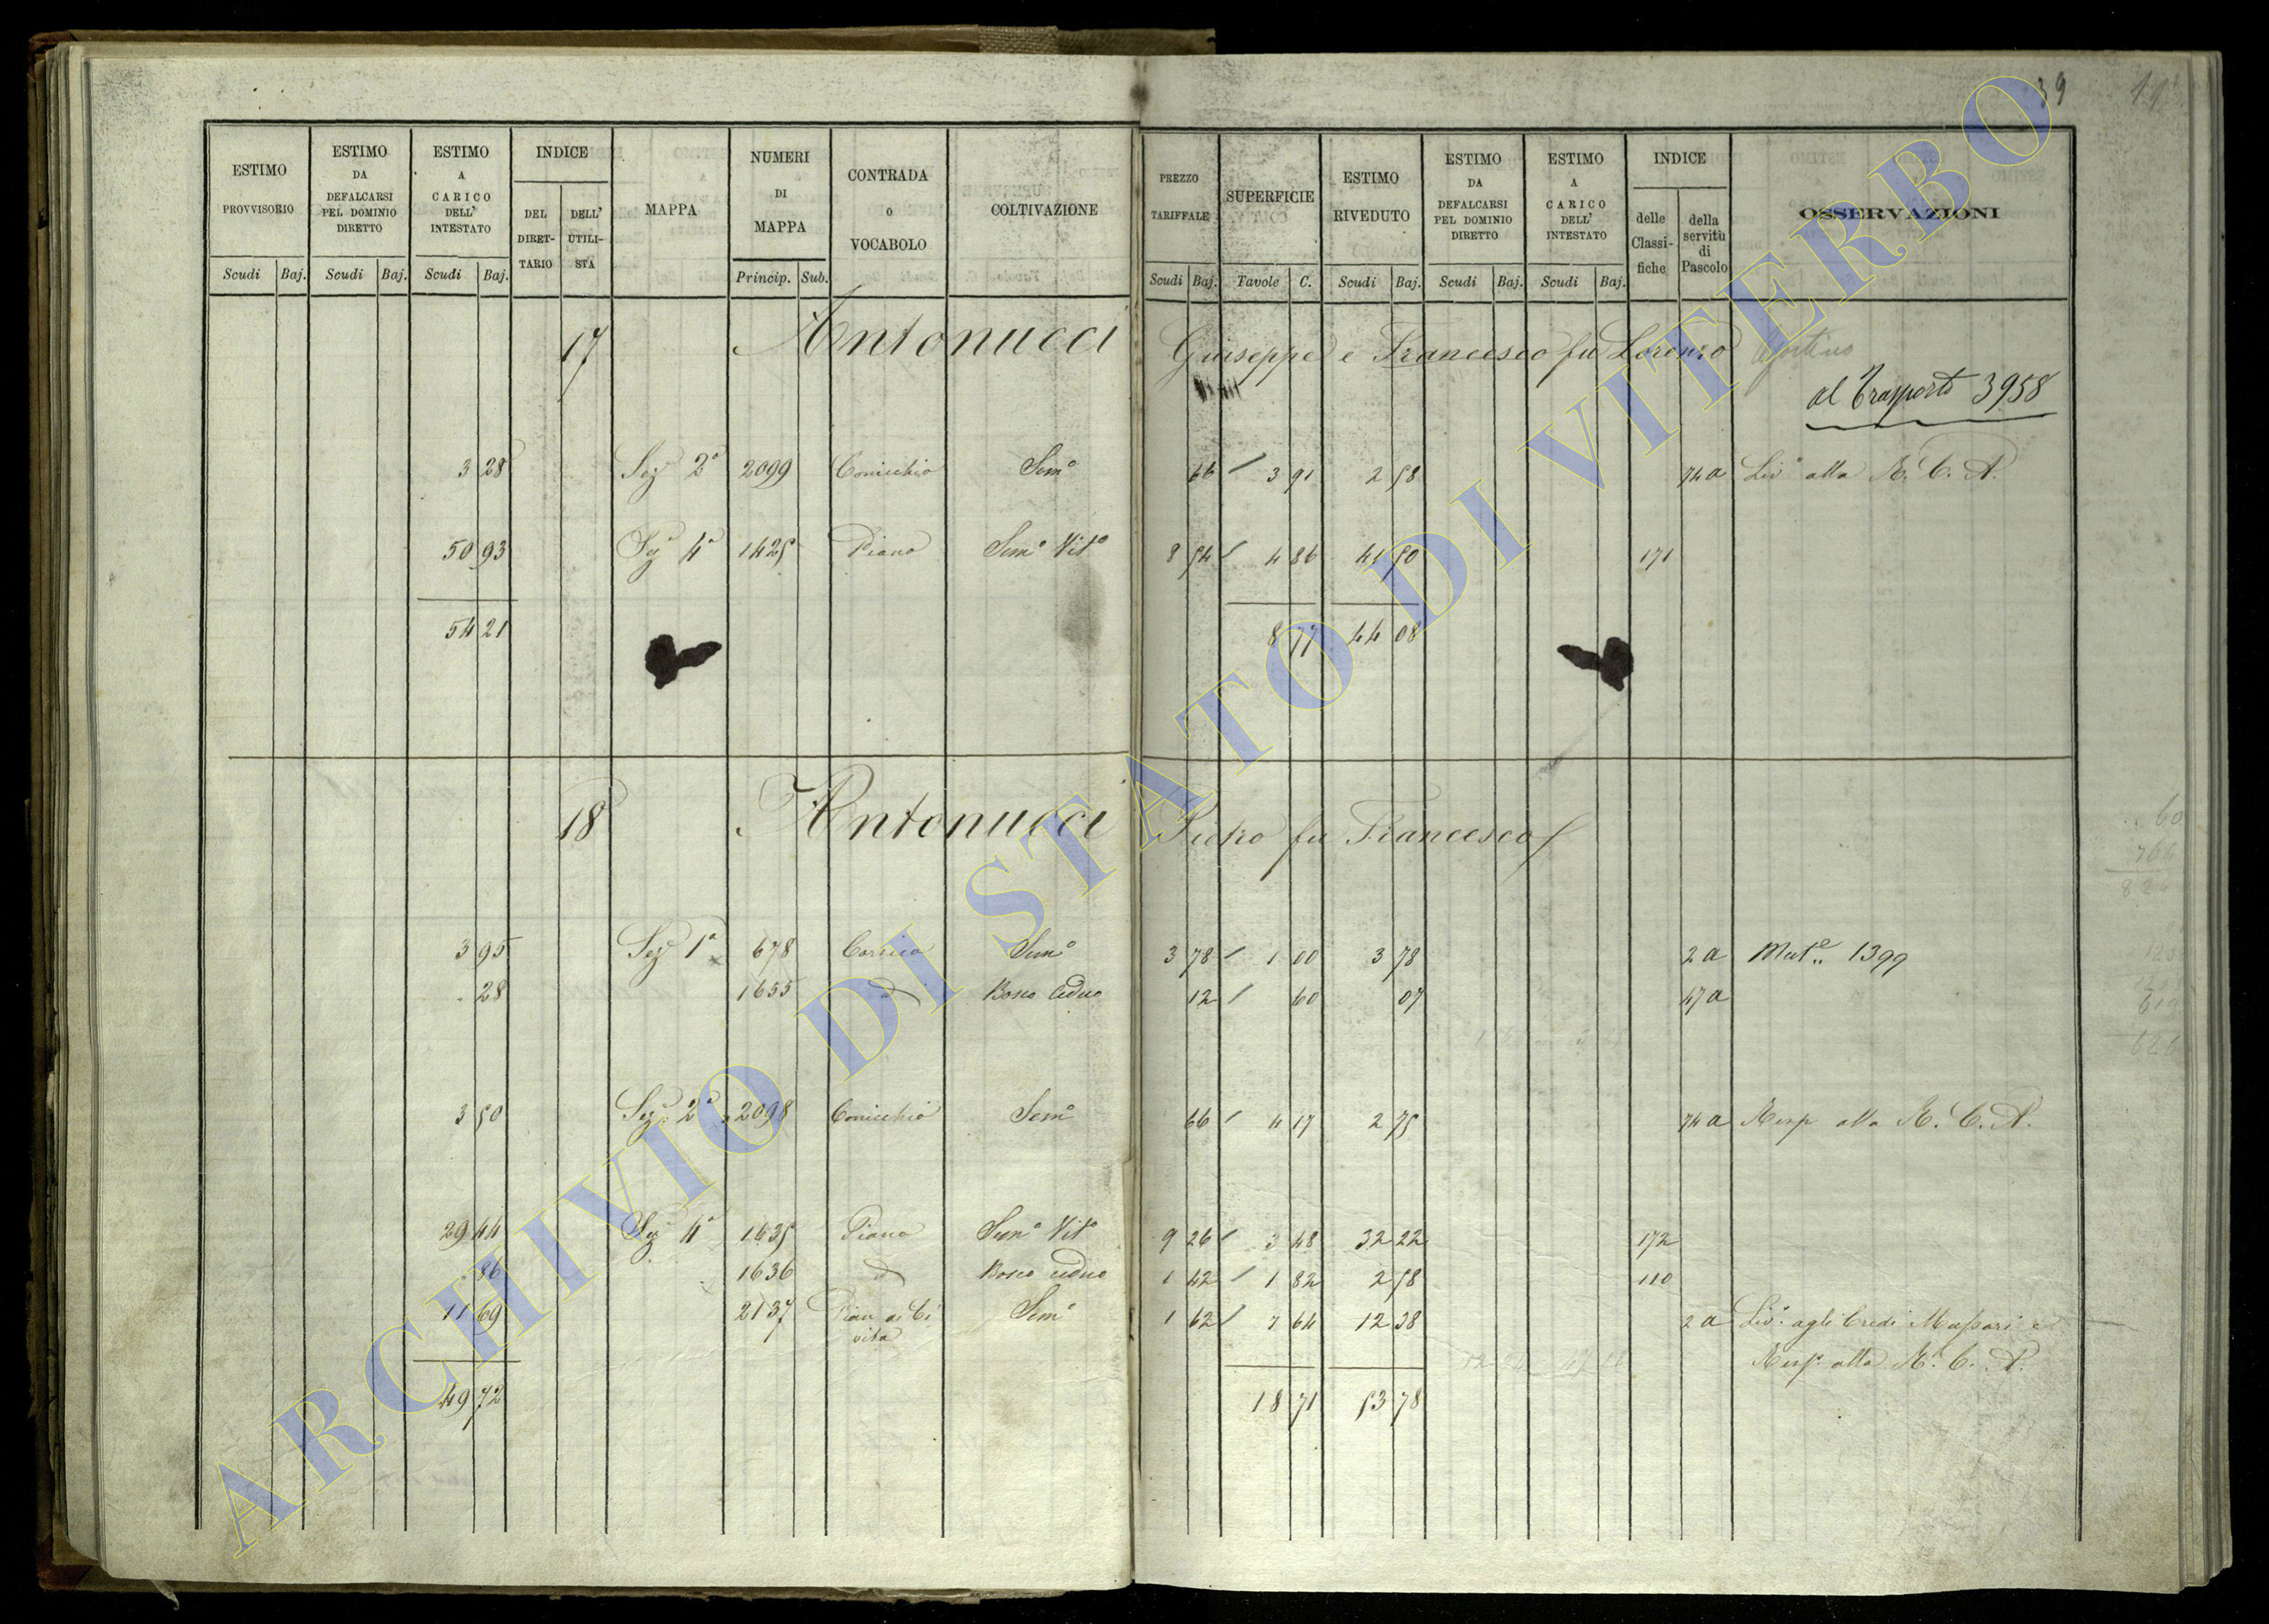 39 11
ESTIMO PROVVISORIO | ESTIMO DA DEFALCARSI PEL DOMINIO DIRETTO | ESTIMO A CARICO DELL' INTESTATO | INDICE | MAPPA | NUMERI DI MAPPA | CONTRADA O VOCABOLO | COLTIVAZIONE | PREZZO TARIFFALE | SUPERFICIE | ESTIMO RIVEDUTO | ESTIMO DA DEFALCARSI PEL DOMINIO DIRETTO | ESTIMO A CARICO DELL' INTESTATO | INDICE | OSSERVAZIONI
DEL DIRETTARIO | DELL' UTILISTA | delle Classifiche | della servitù di Pascolo
Scudi Baj. | Scudi Baj. | Scudi Baj. | Princip. Sub. | Scudi Baj. | Tavole C. | Scudi Baj. | Scudi Baj. | Scudi Baj.
17 Antonucci Giuseppe e Francesco fu Lorenzo Agostino
al Trasporto 3958
3 28 Sezᵉ 2ª 2099 Conicchio Semº 66 3 91 2 58 74 a Livº alla R. C. A.
50 93 Sezᵉ 4ª 1425 Piano Semº Vitº 8 54 4 86 41 50 171
54 21 8 77 44 08
18 Antonucci Pietro fu Francesco
3 95 Sezᵉ 1ª 678 Corsica Semº 3 78 1 00 3 78 2 a Mutᵉ 1399
28 1655 d Bosco Ceduo 12 60 07 47 a
3 50 Sezᵉ 2ª 2098 Conicchio Semº 66 4 17 2 75 74 a Risp alla R. C. A.
29 44 Sezᵉ 4ª 1635 Piano Semº Vitº 9 26 3 48 32 22 172
86 1636 d Bosco ceduo 1 42 1 82 2 58 110
11 69 2137 Pian di Ci Semº 1 62 7 64 12 38 2 a Livº agli Eredi Massari e
vita Rispᵉ alla R. C. A.
49 72 18 71 53 78
ARCHIVIO DI STATO DI VITERBO